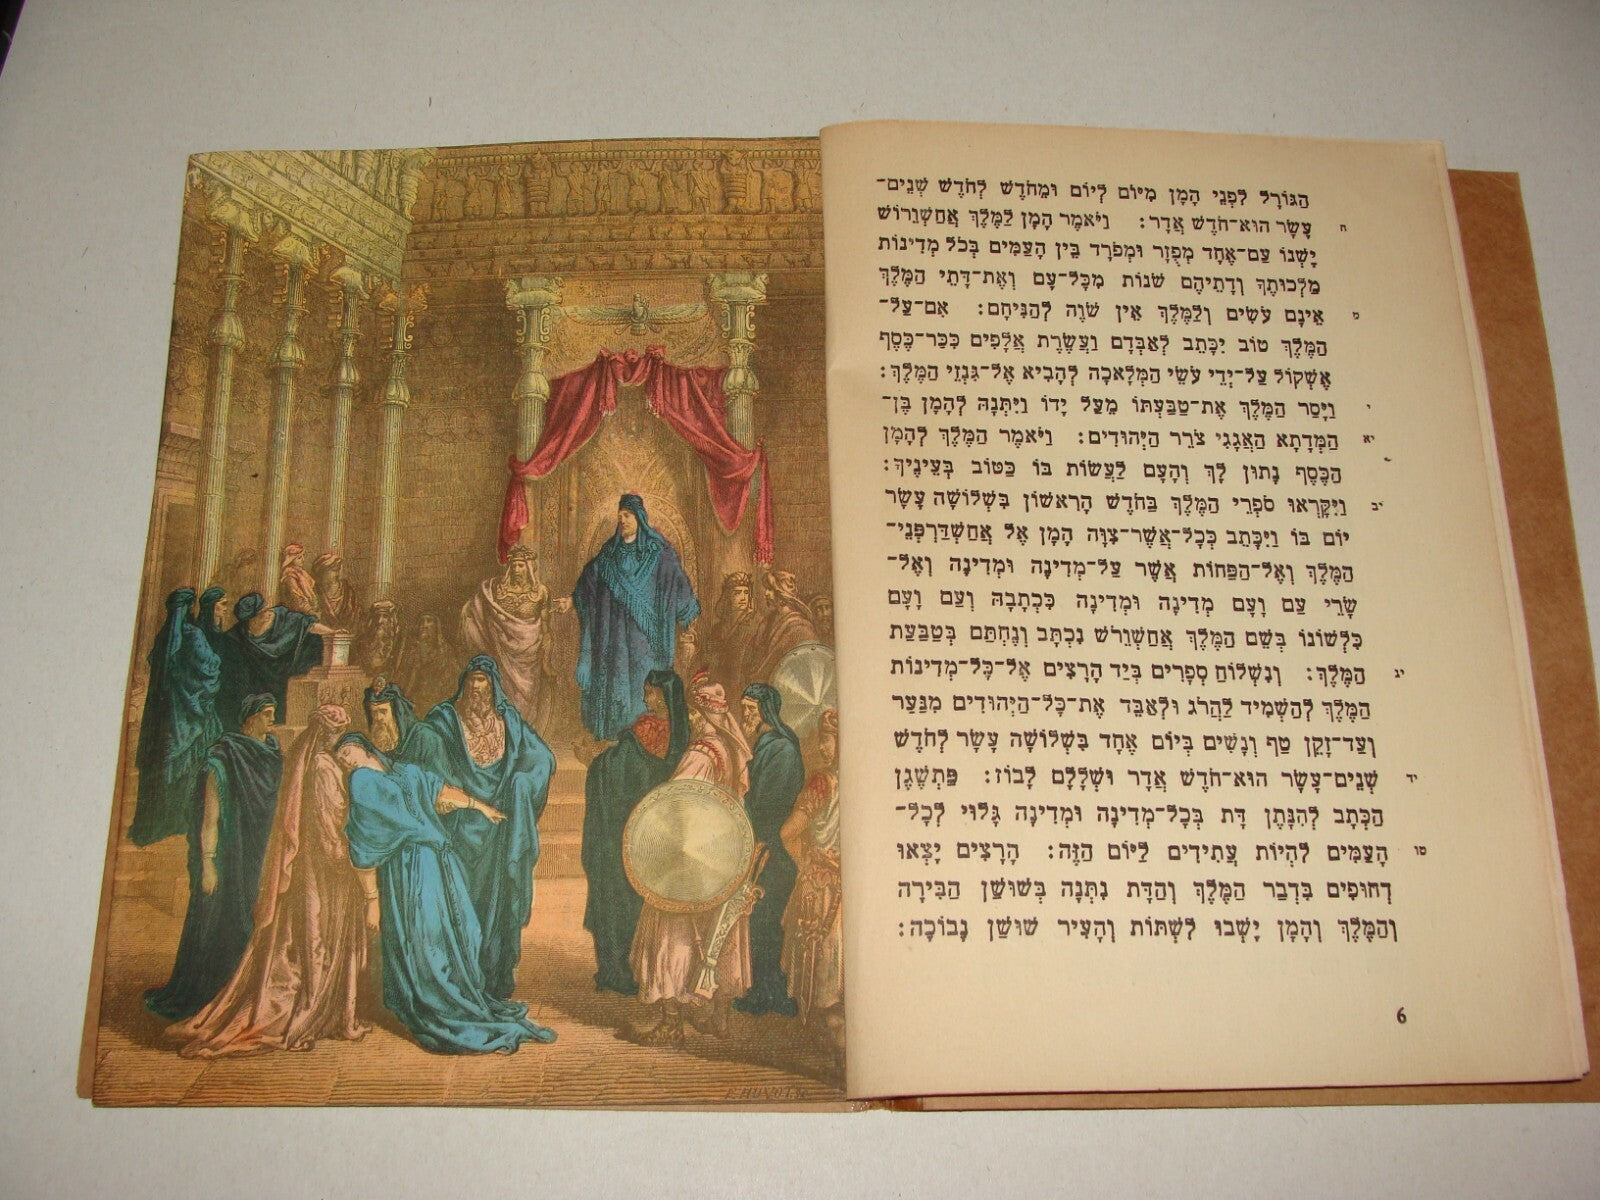 הַגּוֹרָל לִפְנֵי הָמָן מִיּוֹם לְיוֹם וּמֵחֹדֶשׁ לְחֹדֶשׁ שְׁנֵים־
ח עָשָׂר הוּא־חֹדֶשׁ אֲדָר: וַיֹּאמֶר הָמָן לַמֶּלֶךְ אֲחַשְׁוֵרוֹשׁ
יֶשְׁנוֹ עַם־אֶחָד מְפֻזָּר וּמְפֹרָד בֵּין הָעַמִּים בְּכֹל מְדִינוֹת
מַלְכוּתֶךָ וְדָתֵיהֶם שֹׁנוֹת מִכָּל־עָם וְאֶת־דָּתֵי הַמֶּלֶךְ
ט אֵינָם עֹשִׂים וְלַמֶּלֶךְ אֵין שֹׁוֶה לְהַנִּיחָם: אִם־עַל־
הַמֶּלֶךְ טוֹב יִכָּתֵב לְאַבְּדָם וַעֲשֶׂרֶת אֲלָפִים כִּכַּר־כֶּסֶף
אֶשְׁקוֹל עַל־יְדֵי עֹשֵׂי הַמְּלָאכָה לְהָבִיא אֶל־גִּנְזֵי הַמֶּלֶךְ:
י וַיָּסַר הַמֶּלֶךְ אֶת־טַבַּעְתּוֹ מֵעַל יָדוֹ וַיִּתְּנָהּ לְהָמָן בֶּן־
יא הַמְּדָתָא הָאֲגָגִי צֹרֵר הַיְּהוּדִים: וַיֹּאמֶר הַמֶּלֶךְ לְהָמָן
הַכֶּסֶף נָתוּן לָךְ וְהָעָם לַעֲשׂוֹת בּוֹ כַּטּוֹב בְּעֵינֶיךָ:
יב וַיִּקָּרְאוּ סֹפְרֵי הַמֶּלֶךְ בַּחֹדֶשׁ הָרִאשׁוֹן בִּשְׁלוֹשָׁה עָשָׂר
יוֹם בּוֹ וַיִּכָּתֵב כְּכָל־אֲשֶׁר־צִוָּה הָמָן אֶל אֲחַשְׁדַּרְפְּנֵי־
הַמֶּלֶךְ וְאֶל־הַפַּחוֹת אֲשֶׁר עַל־מְדִינָה וּמְדִינָה וְאֶל־
שָׂרֵי עַם וָעָם מְדִינָה וּמְדִינָה כִּכְתָבָהּ וְעַם וָעָם
כִּלְשׁוֹנוֹ בְּשֵׁם הַמֶּלֶךְ אֲחַשְׁוֵרֹשׁ נִכְתָּב וְנֶחְתָּם בְּטַבַּעַת
יג הַמֶּלֶךְ: וְנִשְׁלוֹחַ סְפָרִים בְּיַד הָרָצִים אֶל־כָּל־מְדִינוֹת
הַמֶּלֶךְ לְהַשְׁמִיד לַהֲרֹג וּלְאַבֵּד אֶת־כָּל־הַיְּהוּדִים מִנַּעַר
וְעַד־זָקֵן טַף וְנָשִׁים בְּיוֹם אֶחָד בִּשְׁלוֹשָׁה עָשָׂר לְחֹדֶשׁ
יד שְׁנֵים־עָשָׂר הוּא־חֹדֶשׁ אֲדָר וּשְׁלָלָם לָבוֹז: פַּתְשֶׁגֶן
הַכְּתָב לְהִנָּתֵן דָּת בְּכָל־מְדִינָה וּמְדִינָה גָּלוּי לְכָל־
טו הָעַמִּים לִהְיוֹת עֲתִידִים לַיּוֹם הַזֶּה: הָרָצִים יָצְאוּ
דְחוּפִים בִּדְבַר הַמֶּלֶךְ וְהַדָּת נִתְּנָה בְּשׁוּשַׁן הַבִּירָה
וְהַמֶּלֶךְ וְהָמָן יָשְׁבוּ לִשְׁתּוֹת וְהָעִיר שׁוּשָׁן נָבוֹכָה:
6